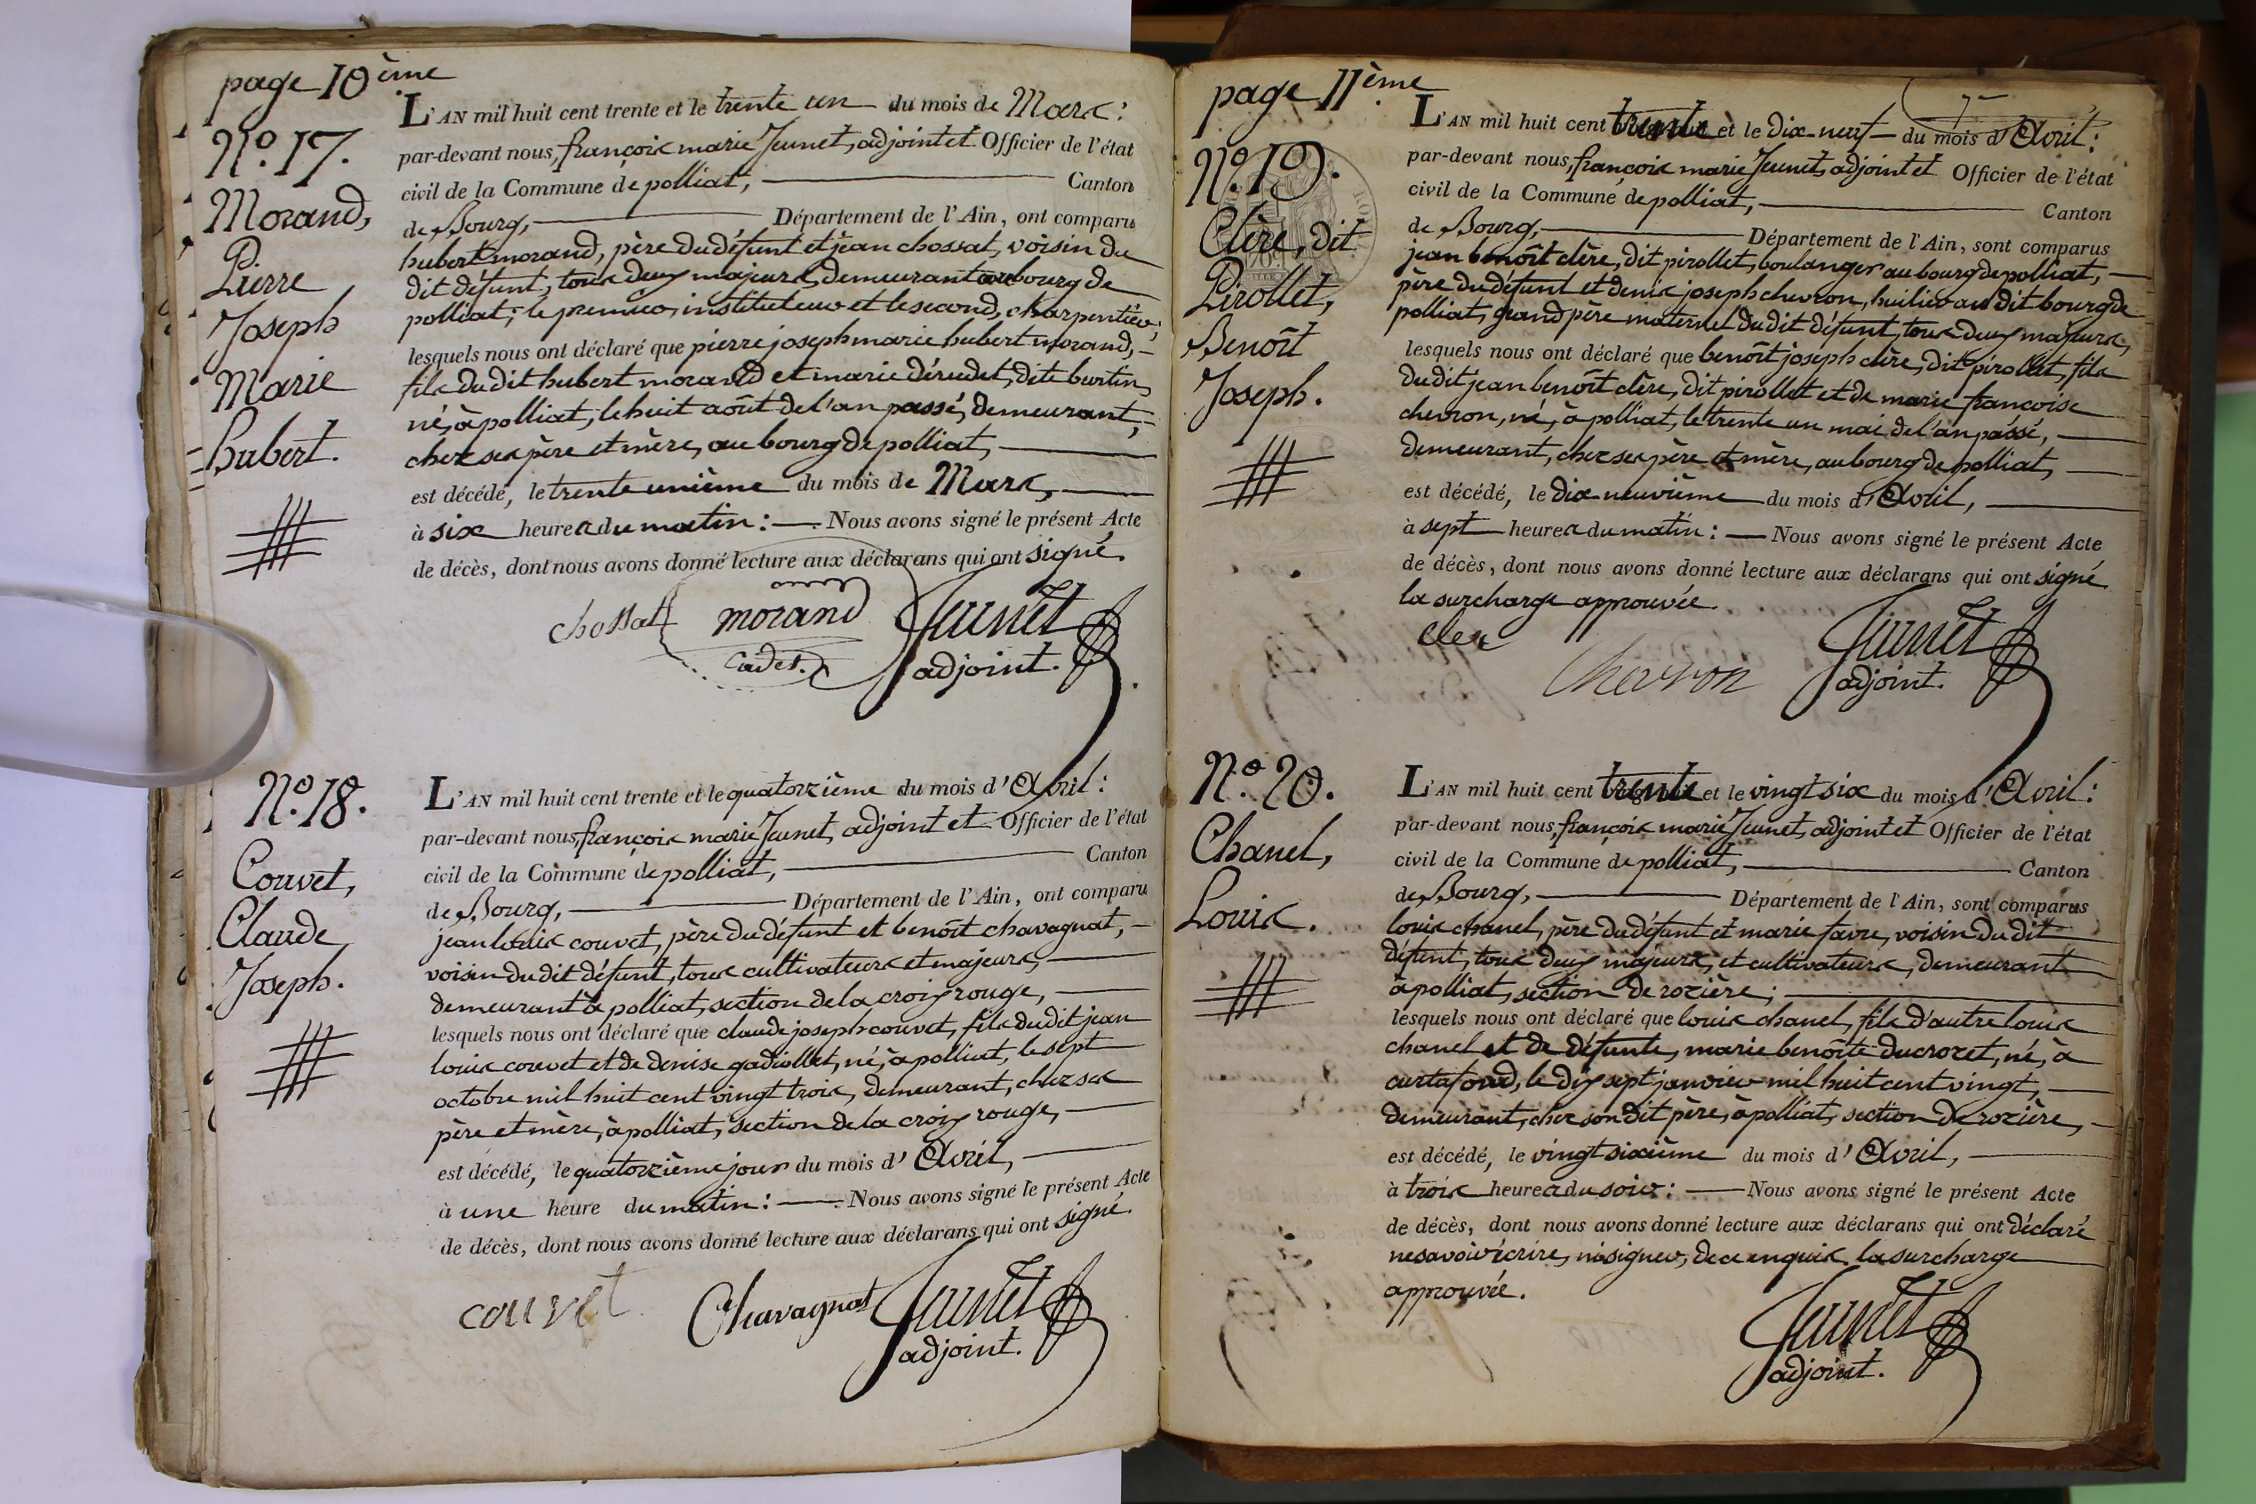 page 10ème
N.° 17.
Morand,
Pierre
Joseph
Marie
Hubert.
L'AN mil huit cent trente et le trente un du mois de Mars:
par-devant nous, françois marie Jeunet, adjoint et Officier de l'état
civil de la Commune de polliat, Canton
de Bourg, Département de l'Ain, ont comparu
hubert morand, père du défunt et jean chossat, voisin du
dit défunt, tous deux majeurs, demeurant au bourg de
polliat; le premier, instituteur et le second, charpentier;
lesquels nous ont déclaré que pierre joseph marie hubert morand,
fils du dit hubert morand et marie dérudet, dite burtin,
né, à polliat, le huit août de l'an passé, demeurant,
chez ses père et mère, au bourg de polliat,
est décédé, le trente unième du mois de Mars,
à six heures du matin: Nous avons signé le présent Acte
de décès, dont nous avons donné lecture aux déclarans qui ont signé.
chossat morand Jeunet
cadet. adjoint.
N.° 18.
Couvet,
Claude
Joseph.
L'AN mil huit cent trente et le quatorzième du mois d'Avril:
par-devant nous, françois marie Jeunet, adjoint et Officier de l'état
civil de la Commune de polliat, Canton
de Bourg, Département de l'Ain, ont comparu
jean louis couvet, père du défunt et benoît chavagnat,
voisin du dit défunt, tous cultivateurs et majeurs,
demeurant à polliat, section de la croix rouge,
lesquels nous ont déclaré que claude joseph couvet, fils du dit jean
louis couvet et de denise gadiollet, né, à polliat, le sept
octobre mil huit cent vingt trois, demeurant, chez ses
père et mère, à polliat, section de la croix rouge,
est décédé, le quatorzième jour du mois d'Avril,
à une heure du matin: Nous avons signé le présent Acte
de décès, dont nous avons donné lecture aux déclarans qui ont signé.
couvet Chavagnat Jeunet
adjoint.
page 11ème
N.° 19.
Clère, dit
Pirollet,
Benoît
Joseph.
L'AN mil huit cent trente et le dix-neuf du mois d'Avril:
par-devant nous, françois marie Jeunet, adjoint et Officier de l'état
civil de la Commune de polliat, Canton
de Bourg, Département de l'Ain, sont comparus
jean benoît clère, dit pirollet, boulanger au bourg de polliat,
père du défunt et denis joseph chevron, huilier au dit bourg de
polliat, grand père maternel du dit défunt, tous deux majeurs,
lesquels nous ont déclaré que benoît joseph clère, dit pirollet, fils
du dit jean benoît clère, dit pirollet et de marie françoise
chevron, né, à polliat, le trente un mai de l'an passé,
demeurant, chez ses père et mère, au bourg de polliat,
est décédé, le dix neuvième du mois d'Avril,
à sept heures du matin: Nous avons signé le présent Acte
de décès, dont nous avons donné lecture aux déclarans qui ont signé
la surcharge approuvée.
Chevron Jeunet
adjoint.
N.° 20.
Chanel,
Louis.
L'AN mil huit cent trente et le vingt six du mois d'Avril:
par-devant nous, françois marie Jeunet, adjoint et Officier de l'état
civil de la Commune de polliat, Canton
de Bourg, Département de l'Ain, sont comparus
louis chanel, père du défunt et marie favre, voisin du dit
défunt, tous deux majeurs, et cultivateurs, demeurant
à polliat, section de rozière;
lesquels nous ont déclaré que louis chanel, fils d'autre louis
chanel et de défunte, marie benoîte ducrozet, né, à
curtafond, le dix sept janvier mil huit cent vingt,
demeurant, chez son dit père, à polliat, section de rozière,
est décédé, le vingt sixième du mois d'Avril,
à trois heures du soir: Nous avons signé le présent Acte
de décès, dont nous avons donné lecture aux déclarans qui ont déclaré
ne savoir écrire, ni signer, de ce enquis, la surcharge
approuvée.
Jeunet
adjoint.